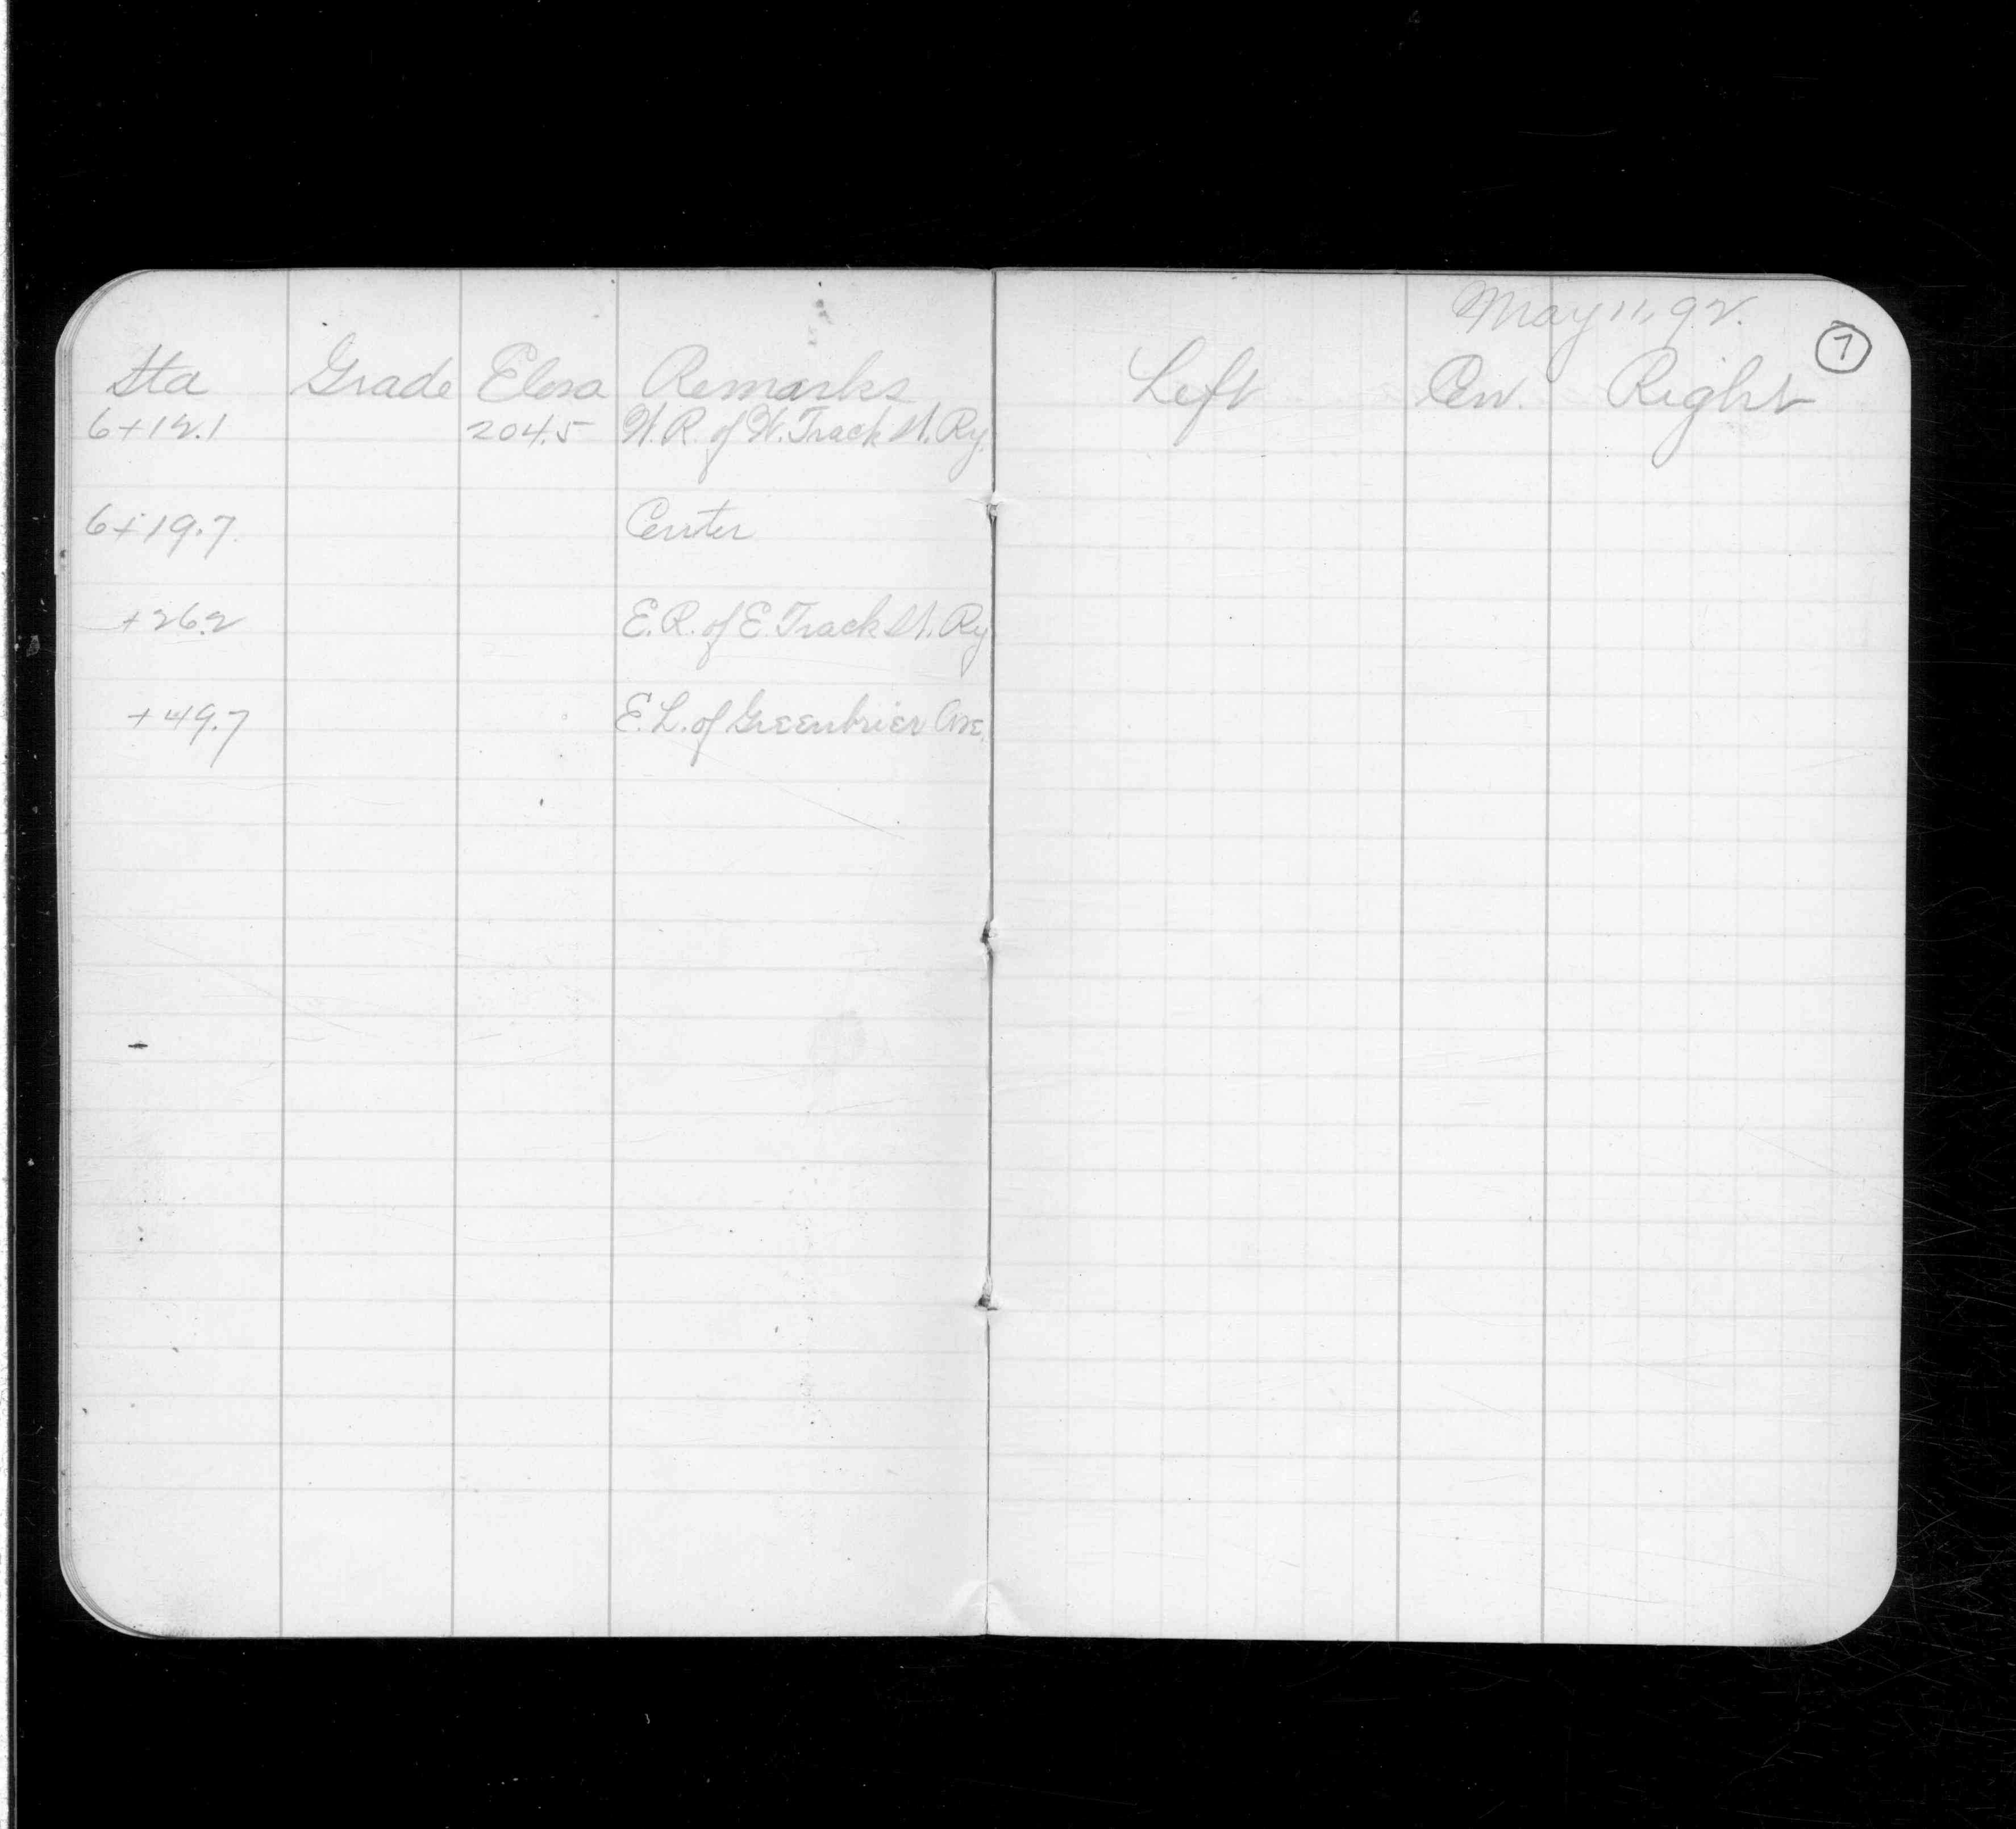 May 11, 92.
7
Sta Grade Eleva Remarks Left Cen. Right
6+12.1 204.5 W.R. of W. Track St. Ry.
6+19.7 Center
+26.2 E.R. of E. Track St. Ry
+49.7 E.L. of Greenbrier Ave.